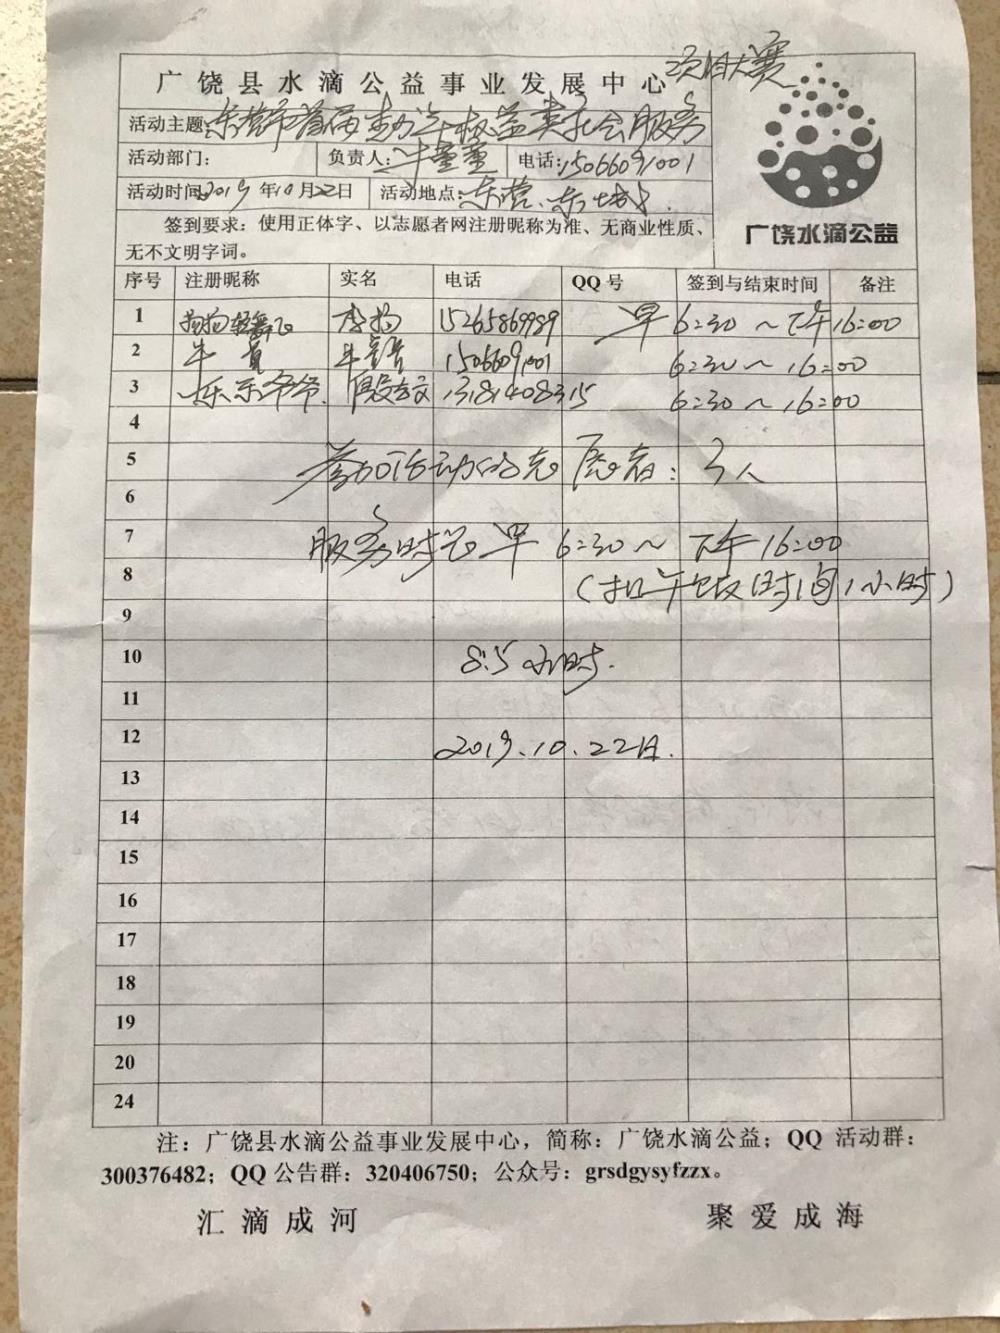 项目大赛
广饶县水滴公益事业发展中心
活动主题：东营市首届青少年权益类社会服务
活动部门： 负责人：牛童童 电话：15066091001
活动时间2019年10月22日 活动地点：东营、东城
签到要求：使用正体字、以志愿者网注册昵称为准、无商业性质、
无不文明字词。
广饶水滴公益
序号 注册昵称 实名 电话 QQ号 签到与结束时间 备注
1 李扬 15265869989 早6:30～下午16:00
2 牛童 牛童童 15066091001 6:30～16:00
3 乐乐爷爷 13181408315 6:30～16:00
4
5 参加活动的志愿者：3人
6
7 服务时长早6:30～下午16:00
8 （扣午饭时间1小时）
9
10 8.5小时.
11
12 2019.10.22日.
13
14
15
16
17
18
19
20
24
注：广饶县水滴公益事业发展中心，简称：广饶水滴公益；QQ 活动群：
300376482；QQ 公告群：320406750；公众号：grsdgysyfzzx。
汇滴成河 聚爱成海